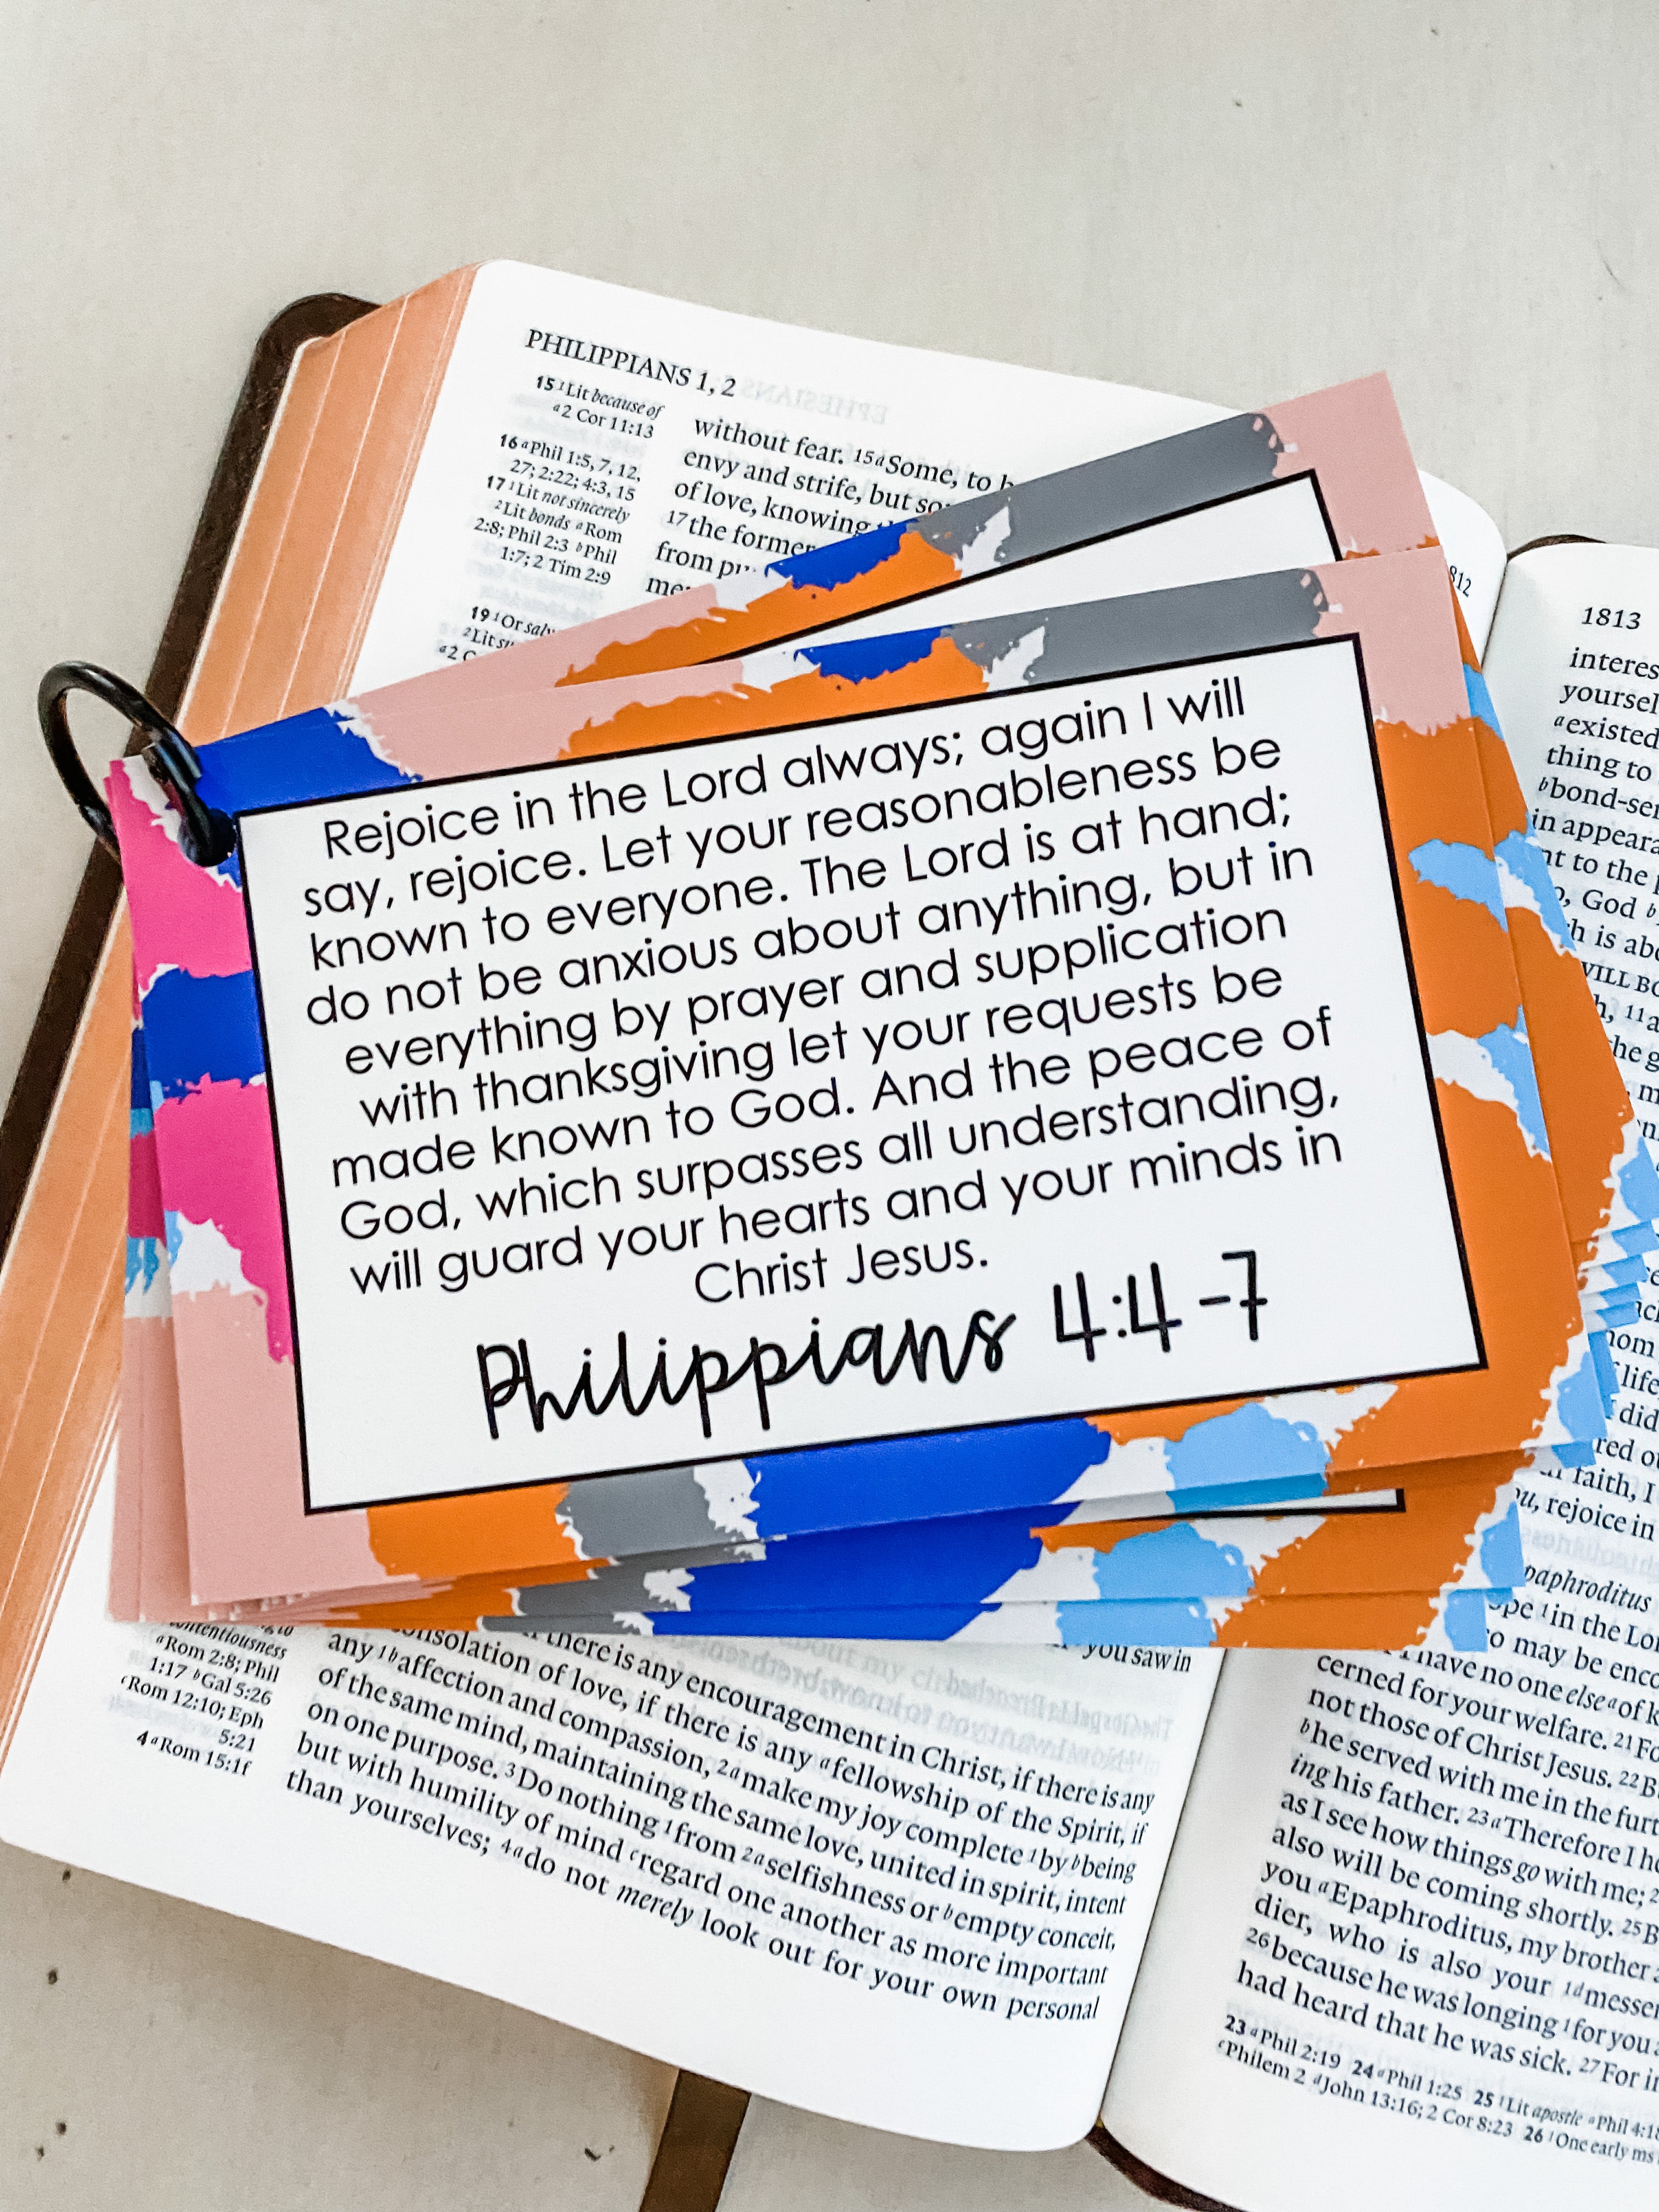 PHILIPPIANS 1, 2
15 1Lit because of
a2 Cor 11:13
16 aPhil 1:5, 7, 12,
27; 2:22; 4:3, 15
17 1Lit not sincerely
2Lit bonds aRom
2:8; Phil 2:3 bPhil
1:7; 2 Tim 2:9
19 1Or
2Lit
a2
without fear. 15aSome, to
envy and strife, but
of love, knowing
17the former
from
Rejoice in the Lord always; again I will
say, rejoice. Let your reasonableness be
known to everyone. The Lord is at hand;
do not be anxious about anything, but in
everything by prayer and supplication
with thanksgiving let your requests be
made known to God. And the peace of
God, which surpasses all understanding,
will guard your hearts and your minds in
Christ Jesus.
Philippians 4:4-7
contentiousness
aRom 2:8; Phil
1:17 bGal 5:26
cRom 12:10; Eph
5:21
4 aRom 15:1f
you saw in
there is any encouragement in Christ, if there is any
consolation of love, if there is any afellowship of the Spirit, if
any 1baffection and compassion, 2amake my joy complete 1by bbeing
of the same mind, maintaining the same love, united in spirit, intent
on one purpose. 3Do nothing 1from 2aselfishness or bempty conceit,
but with humility of mind cregard one another as more important
than yourselves; 4ado not merely look out for your own personal
1813
aexisted
thing to
in appeara
to the
God
is
life
did
faith, I
rejoice in
in the
may be
I have no one else aof
cerned for your welfare. 21
not those of Christ Jesus. 22
bhe served with me in the
ing his father. 23aTherefore I
as I see how things go with me;
also will be coming shortly. 25
you aEpaphroditus, my brother
dier, who is also your 1d
26because he was longing 1for you
had heard that he was sick. 27For
23 aPhil 2:19 24 aPhil 1:25 25 1Lit apostle aPhil
cPhilem 2 dJohn 13:16; 2 Cor 8:23 26 1One early ms